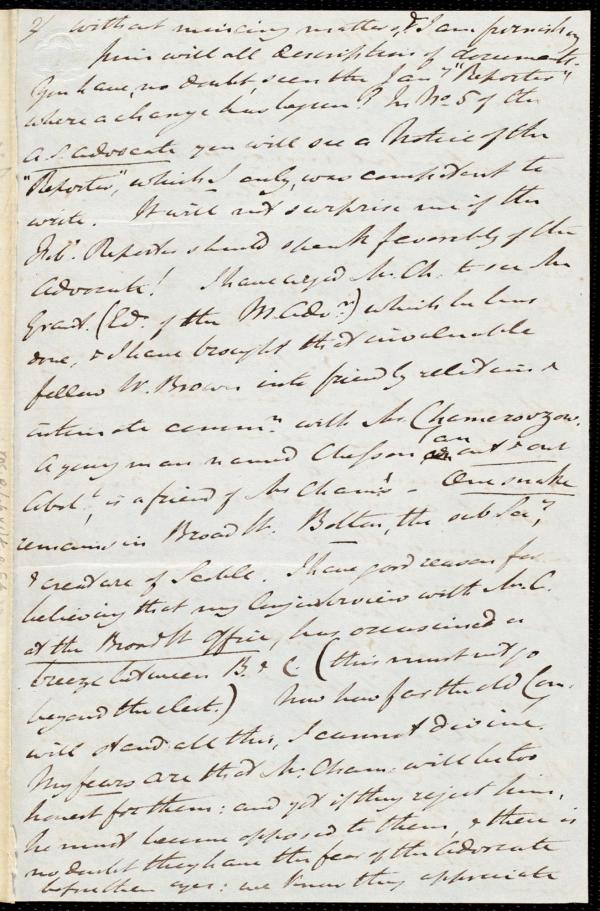 2/ without mincing matters, & I am furnishing
him with all descriptions of documents.
You have, no doubt, seen the Jany. "Reporter",
where a change has begun? In No. 5 of the
A. S. Advocate you will see a Notice of the
"Reporter", which I only, was competent to
write. It will not surprise me if the
Feby. Reporter should speak favorably of the
Advocate! I have urged Mr. Ch. to see Mr
Grant. (Edr. of the M. Advr.) which he has
done, & I have brought that invaluable
fellow W. Brown into friendly relations &
intimate commn. with Mr. Chamerovzow.
A young man named Chesson an out & out
Abolt., is a friend of Mr Cham's - One snake
remains in Broad St. Bolton, the sub Secy,
& creature of Scoble. I have good reason for
believing that my long interview with Mr. C.
at the Broad St Office, has occasioned a
breeze between B. & C. (this must not go
beyond the elect.) Now how far the old Com.
will stand all this, I cannot divine.
My fears are that Mr. Cham. will be too
honest for them: and yet if they reject him,
he must become opposed to them, & there is
no doubt they have the fear of the Advocate
before their eyes: we know they appreciate